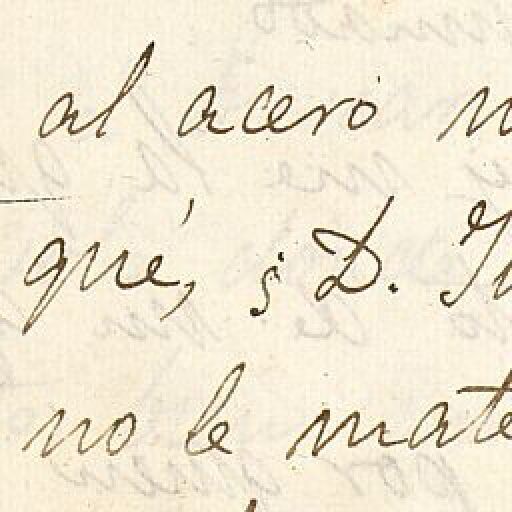 al acero
qué, ¿D.
no le mate